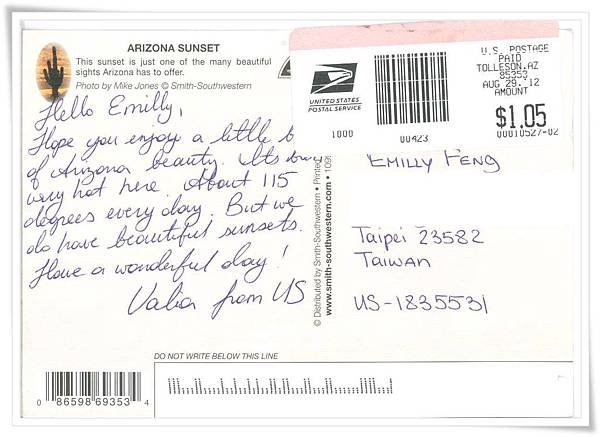 ARIZONA SUNSET
This sunset is just one of the many beautiful
sights Arizona has to offer.
Photo by Mike Jones © Smith-Southwestern
Hello Emilly,
Hope you enjoy a little b
of Arizona beauty. It's
very hot here. About 115
degrees every day. But we
do have beautiful sunsets.
Have a wonderful day!
from US
UNITED STATES
POSTAL SERVICE
1000
00423
U.S. POSTAGE
PAID
TOLLESON,AZ
85353
AUG 29, 12
AMOUNT
$1.05
00010527-02
EMILLY FENG
Taipei 23582
TAIWAN
US-1835531
© Distributed by Smith-Southwestern • Printed
www.smith-southwestern.com • 109
DO NOT WRITE BELOW THIS LINE
0 86598 69353 4